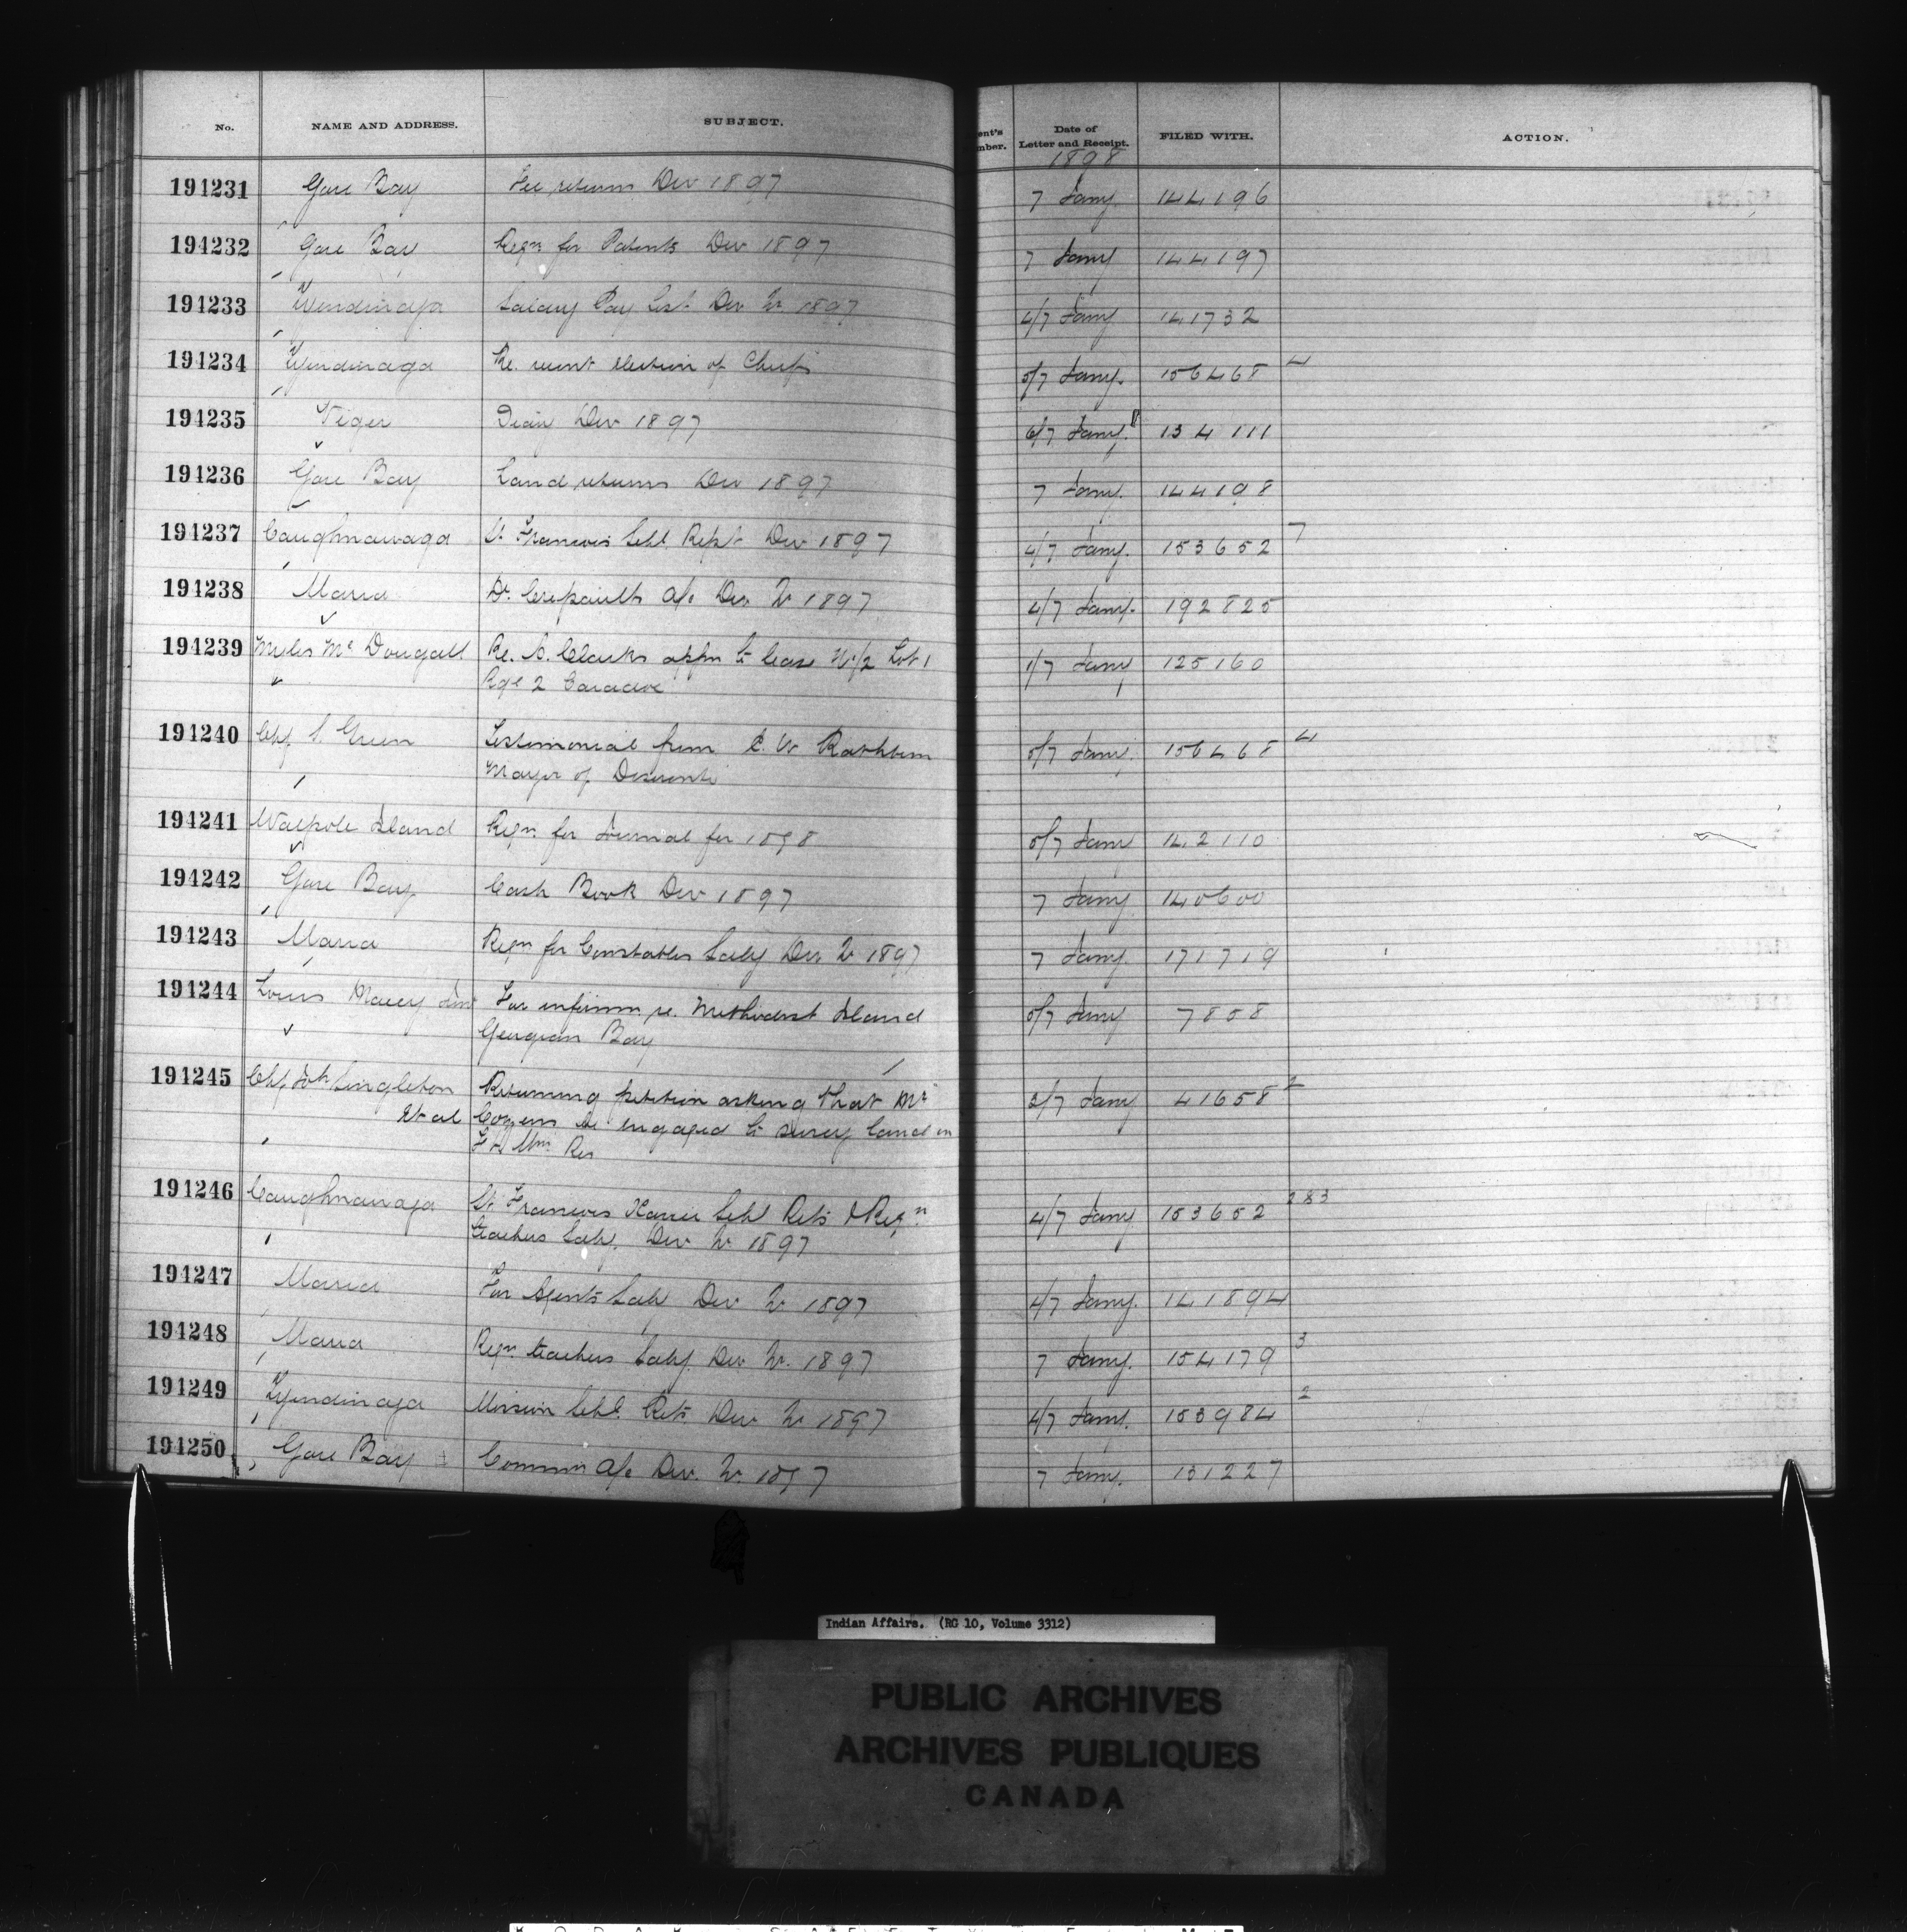 No. NAME AND ADDRESS. SUBJECT. ent's mber. Date of Letter and Receipt. FILED WITH. ACTION.
1898
194231 Gore Bay Fee returns Dec 1897 7 Jany. 144196
194232 Gore Bay Reqn for Patents Dec 1897 7 Jany 144197
194233 Tyendinaga Salary Pay List Dec Qr 1897 4/7 Jany 141732
194234 Tyendinaga Re. recent election of Chiefs 5/7 Jany. 156468 4
194235 Viger Diary Dec 1897 6/7 Jany. 134111
194236 Gore Bay Land returns Dec 1897 7 Jany. 144198
194237 Caughnawaga St. Francois Schl Rept Dec 1897 4/7 Jany. 153652 7
194238 Maria Dr. Crepault's a/c Dec Qr 1897 4/7 Jany. 192825
194239 Myles Mc Dougall Re. Clarks appn to lease 1/2 Lot 1 1/7 Jany 125160
Rge 2
194240 Chf S. Green Testimonial from E. W Rathbun 5/7 Jany. 156468 4
Mayor of Deseronto
194241 Walpole Island Reqn. for Journal for 1898 5/7 Jany 142110
194242 Gore Bay Cash Book Dec 1897 7 Jany 140600
194243 Maria Reqn for Constables Saly Dec Qr 1897 7 Jany. 171719
194244 Louis For informn re. Methodist Island 5/7 Jany 7858
Georgian Bay
194245 Chf Singleton Returning petition asking that Mr 3/7 Jany 41658 2
Et al Cozens be engaged to survey land in
Ft Wm Res
194246 Caughnawaga St. Francois Xavier Schl Rets & Reqn 4/7 Jany 153652 2&3
teachers Saly. Dec Qr 1897
194247 Maria For Agents Saly Dec Qr 1897 4/7 Jany. 141894
194248 Maria Reqn. teachers Saly. Dec Qr. 1897 7 Jany. 154179 3
194249 Tyendinaga Mission Schl. Rets Dec Qr 1897 4/7 Jany. 153984 2
194250 Gore Bay Commn a/c Dec. Qr. 1897 7 Jany. 131227
Indian Affairs. (RG 10, Volume 3312)
PUBLIC ARCHIVES
ARCHIVES PUBLIQUES
CANADA